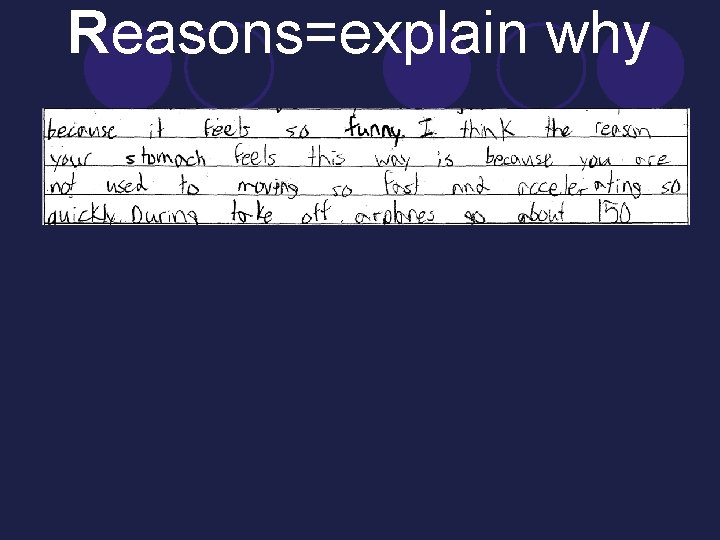 Reasons=explain why
because it feels so funny. I think the reason
your stomach feels this way is because you are
not used to moving so fast and accelerating so
quickly. During take off, airplanes go about 150